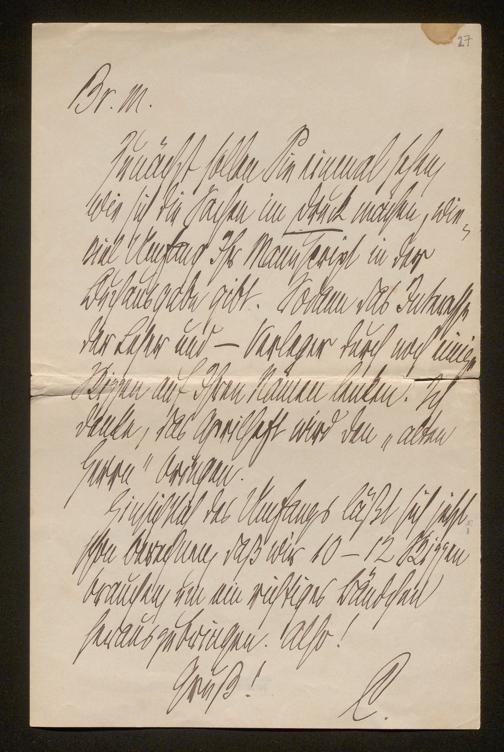 27
Br. M.
Zunächst sollen Sie einmal sehen,
wie sich die Sachen im Druck machen, wie-
viel Umfang Ihr Manuscript in der
Buchausgabe gibt. Sodann das Interesse
der Leser und – Verleger durch noch einige
Skizzen auf Ihren Namen lenken. Ich
denke, das Aprilheft wird den „alten
Herrn" bringen.
Hinsichtlich des Umfangs läßt sich jetzt
schon berechnen, daß wir 10 – 12 Skizzen
brauchen, um ein richtiges Bändchen
herauszubringen. Also!
Gruß!
C.